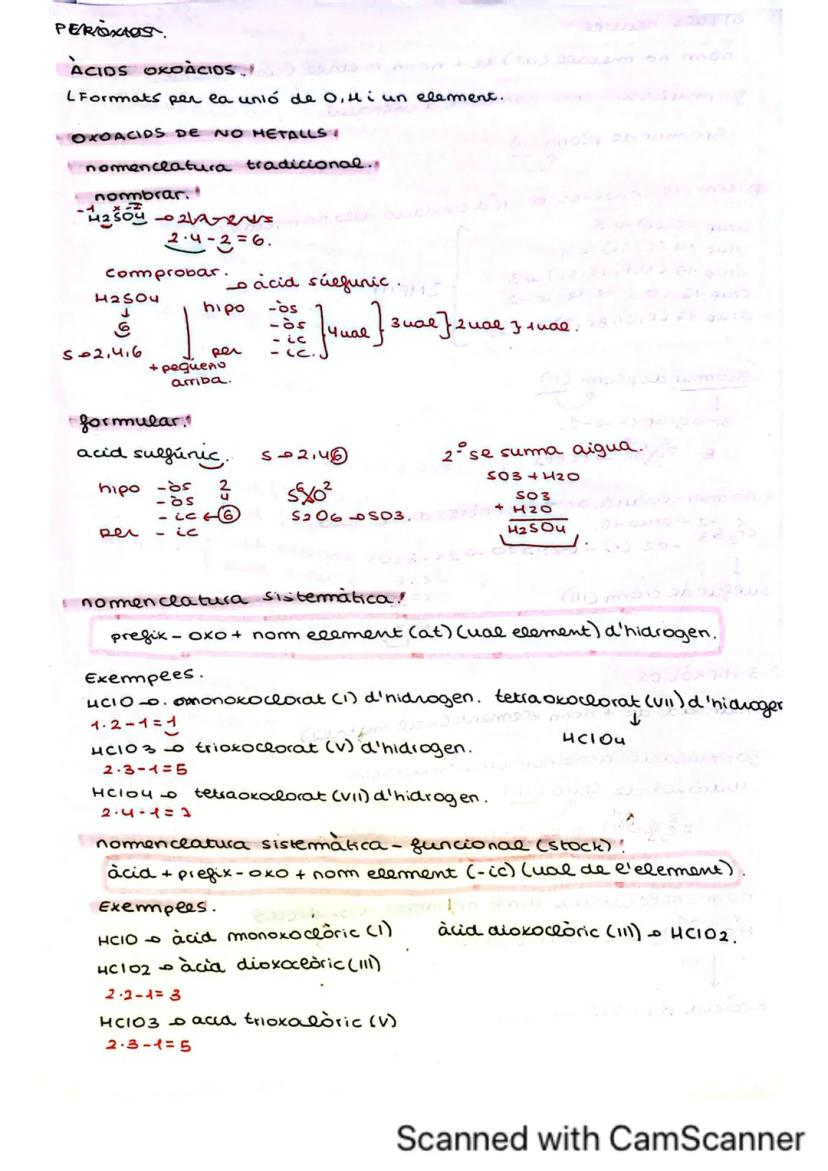 PERÒXIDS.
ÀCIDS OXOÀCIDS.
Formats per la unió de O, H i un element.
OXOACIDS DE NO METALLS
nomenclatura tradicional.
nombrar.
-1 x -2
H2SO4 →
2·4-2=6.
comprobar.
→ àcid súlfuric.
H2SO4
↓
6
S→2,4,6
+ pequeño
arriba.
hipo -òs
-òs
-ic
per -ic.
4val } 3val } 2val } 1val.
formular.
acid sulfúric. S→2,4,6
hipo -òs 2
-òs 4
-ic ← 6
per -ic
S6 O2
S2O6 → SO3.
2º se suma aigua.
SO3 + H2O
SO3
+ H2O
H2SO4
nomenclatura sistemàtica!
prefix-oxo + nom element (at) (val element) d'hidrogen.
Exemples.
HClO → monoxoclorat (I) d'hidrogen. tetraoxoclorat (VII) d'hidrogen
1·2-1=1
↓
HClO4
HClO3 → trioxoclorat (V) d'hidrogen.
2·3-1=5
HClO4 → tetraoxoclorat (VII) d'hidrogen.
2·4-1=7
nomenclatura sistemàtica-funcional (stock)!
àcid + prefix-oxo + nom element (-ic) (val de l'element).
Exemples.
HClO → àcid monoxoclòric (I) àcid dioxoclòric (III) → HClO2.
HClO2 → àcid dioxoclòric (III)
2·2-1=3
HClO3 → acid trioxoclòric (V)
2·3-1=5
Scanned with CamScanner